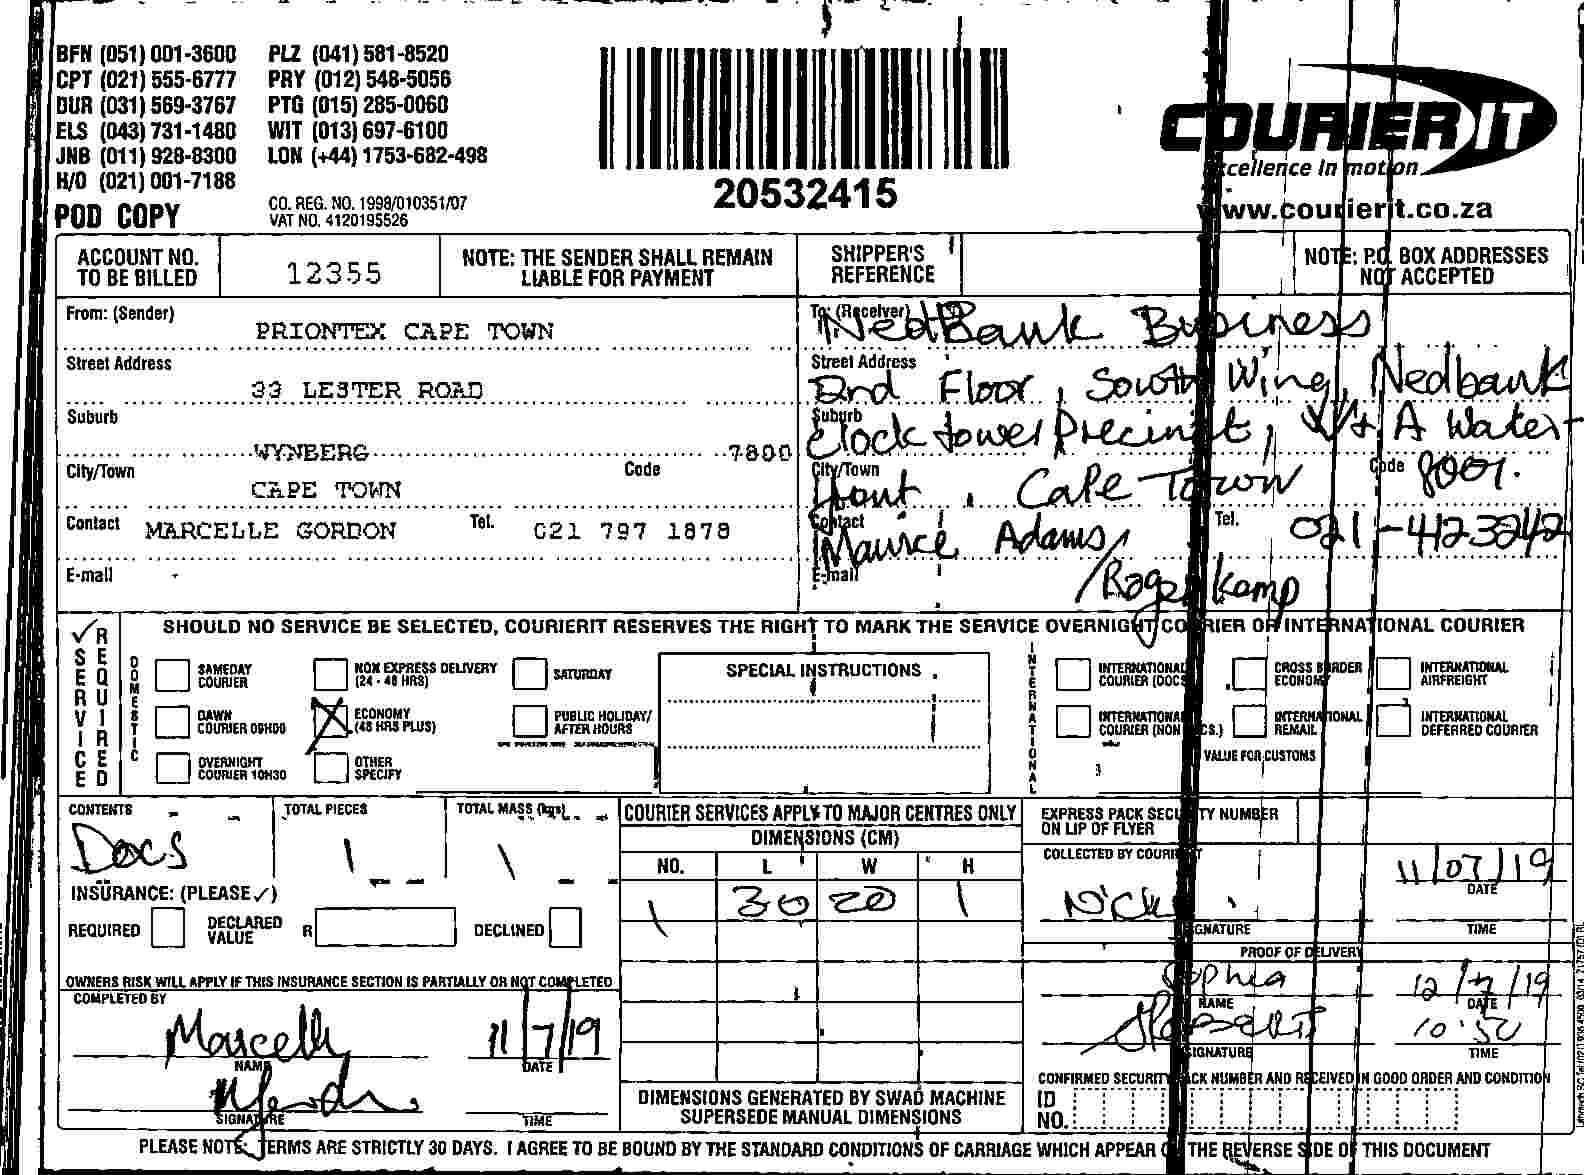 BFN (051) 001-3600 PLZ (041) 581-8520
CPT (021) 555-6777 PRY (012) 548-5056
DUR (031) 569-3767 PTG (015) 285-0060
ELS (043) 731-1480 WIT (013) 697-6100
JNB (011) 928-8300 LON (+44) 1753-682-498
H/O (021) 001-7188
POD COPY
CO. REG. NO. 1998/010351/07
VAT NO. 4120195526
20532415
COURIER IT
Excellence in motion
www.courierit.co.za
ACCOUNT NO. TO BE BILLED 12355
NOTE: THE SENDER SHALL REMAIN LIABLE FOR PAYMENT
SHIPPER'S REFERENCE
NOTE: P.O. BOX ADDRESSES NOT ACCEPTED
From: (Sender) PRIONTEX CAPE TOWN
Street Address 33 LESTER ROAD
Suburb WYNBERG 7800
City/Town CAPE TOWN Code
Contact MARCELLE GORDON Tel. 021 797 1878
E-mail
To: (Receiver) NedBank Business
Street Address 2nd Floor, South Wing, Nedbank
Suburb Clock tower Precinct, V & A Water-
City/Town front, Cape Town Code 8001.
Contact Maurice Adams Tel. 021-4123242
E-mail /Roger Kamp
SHOULD NO SERVICE BE SELECTED, COURIERIT RESERVES THE RIGHT TO MARK THE SERVICE OVERNIGHT COURIER OR INTERNATIONAL COURIER
✓ SERVICE REQUIRED
DOMESTIC
SAMEDAY COURIER
NON EXPRESS DELIVERY (24 - 48 HRS)
SATURDAY
DAWN COURIER 09H00
ECONOMY (48 HRS PLUS)
PUBLIC HOLIDAY/ AFTER HOURS
OVERNIGHT COURIER 10H30
OTHER SPECIFY
SPECIAL INSTRUCTIONS
INTERNATIONAL
INTERNATIONAL COURIER (DOCS)
CROSS BORDER ECONOMY
INTERNATIONAL AIRFREIGHT
INTERNATIONAL COURIER (NON DOCS.)
INTERNATIONAL REMAIL
INTERNATIONAL DEFERRED COURIER
VALUE FOR CUSTOMS
CONTENTS Docs
TOTAL PIECES 1
TOTAL MASS (kgs) 1
INSURANCE: (PLEASE ✓)
REQUIRED DECLARED VALUE R DECLINED
OWNERS RISK WILL APPLY IF THIS INSURANCE SECTION IS PARTIALLY OR NOT COMPLETED
COMPLETED BY
Marcelle 11/7/19
NAME DATE
SIGNATURE TIME
COURIER SERVICES APPLY TO MAJOR CENTRES ONLY
DIMENSIONS (CM)
NO. L W H
1 30 20 1
DIMENSIONS GENERATED BY SWAD MACHINE
SUPERSEDE MANUAL DIMENSIONS
EXPRESS PACK SECURITY NUMBER
ON LIP OF FLYER
COLLECTED BY COURIERIT
11/07/19
DATE
SIGNATURE TIME
PROOF OF DELIVERY
Sophia 12/7/19
NAME DATE
10:50
SIGNATURE TIME
CONFIRMED SECURITY PACK NUMBER AND RECEIVED IN GOOD ORDER AND CONDITION
ID NO.
PLEASE NOTE TERMS ARE STRICTLY 30 DAYS. I AGREE TO BE BOUND BY THE STANDARD CONDITIONS OF CARRIAGE WHICH APPEAR ON THE REVERSE SIDE OF THIS DOCUMENT